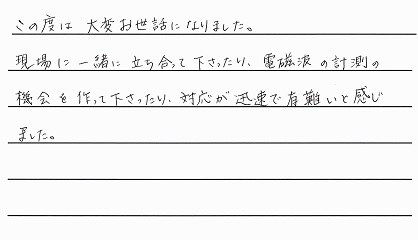 この度は 大変お世話になりました。
現場に一緒に立ち合って下さったり、電磁波の計測の
機会を作って下さったり、対応が迅速で有難いと感じ
ました。